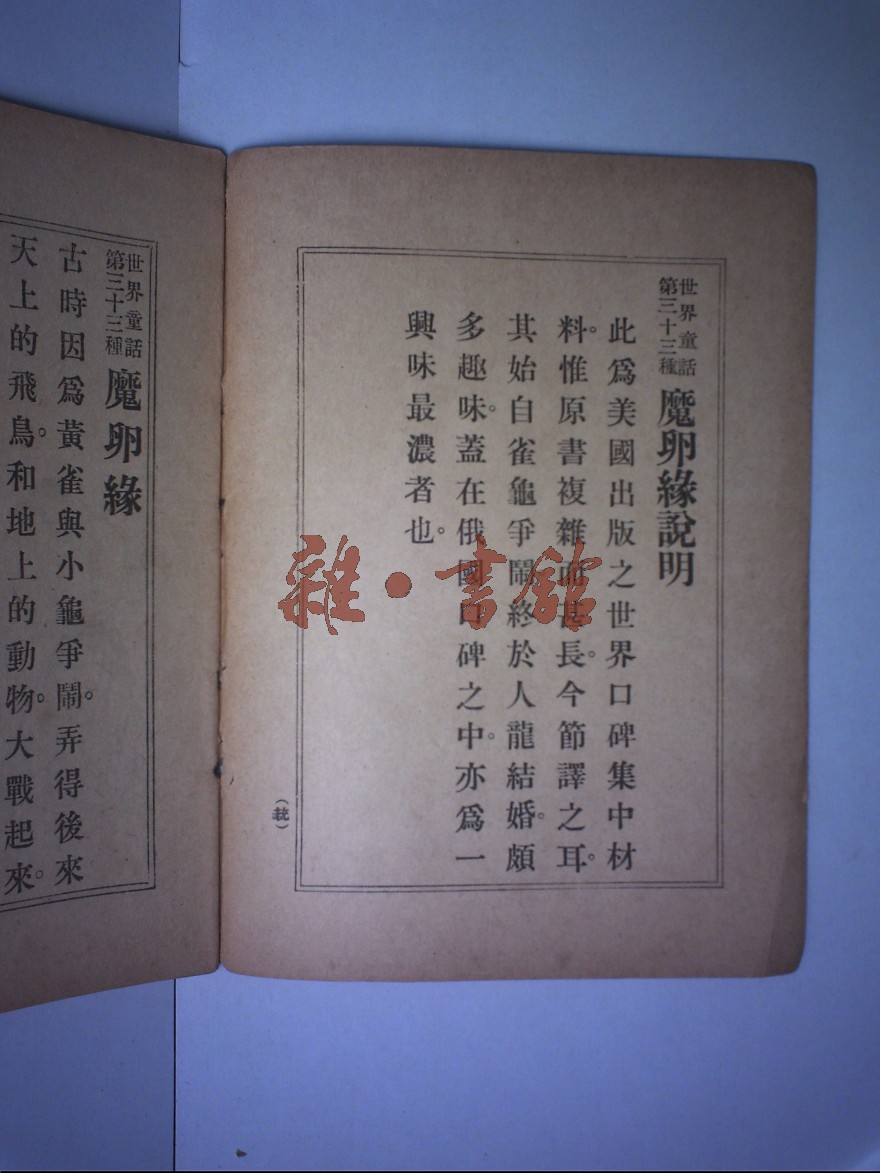 世界童話
第三十三種
魔卵緣說明
此爲美國出版之世界口碑集中材
料。惟原書複雜而甚長。今節譯之耳。
其始自雀龜爭鬧終於人龍結婚。頗
多趣味。蓋在俄國口碑之中。亦爲一
興味最濃者也。
世界童話
第三十三種
魔卵緣
古時因爲黃雀與小龜爭鬧。弄得後來
天上的飛鳥。和地上的動物。大戰起來。
雜·書館